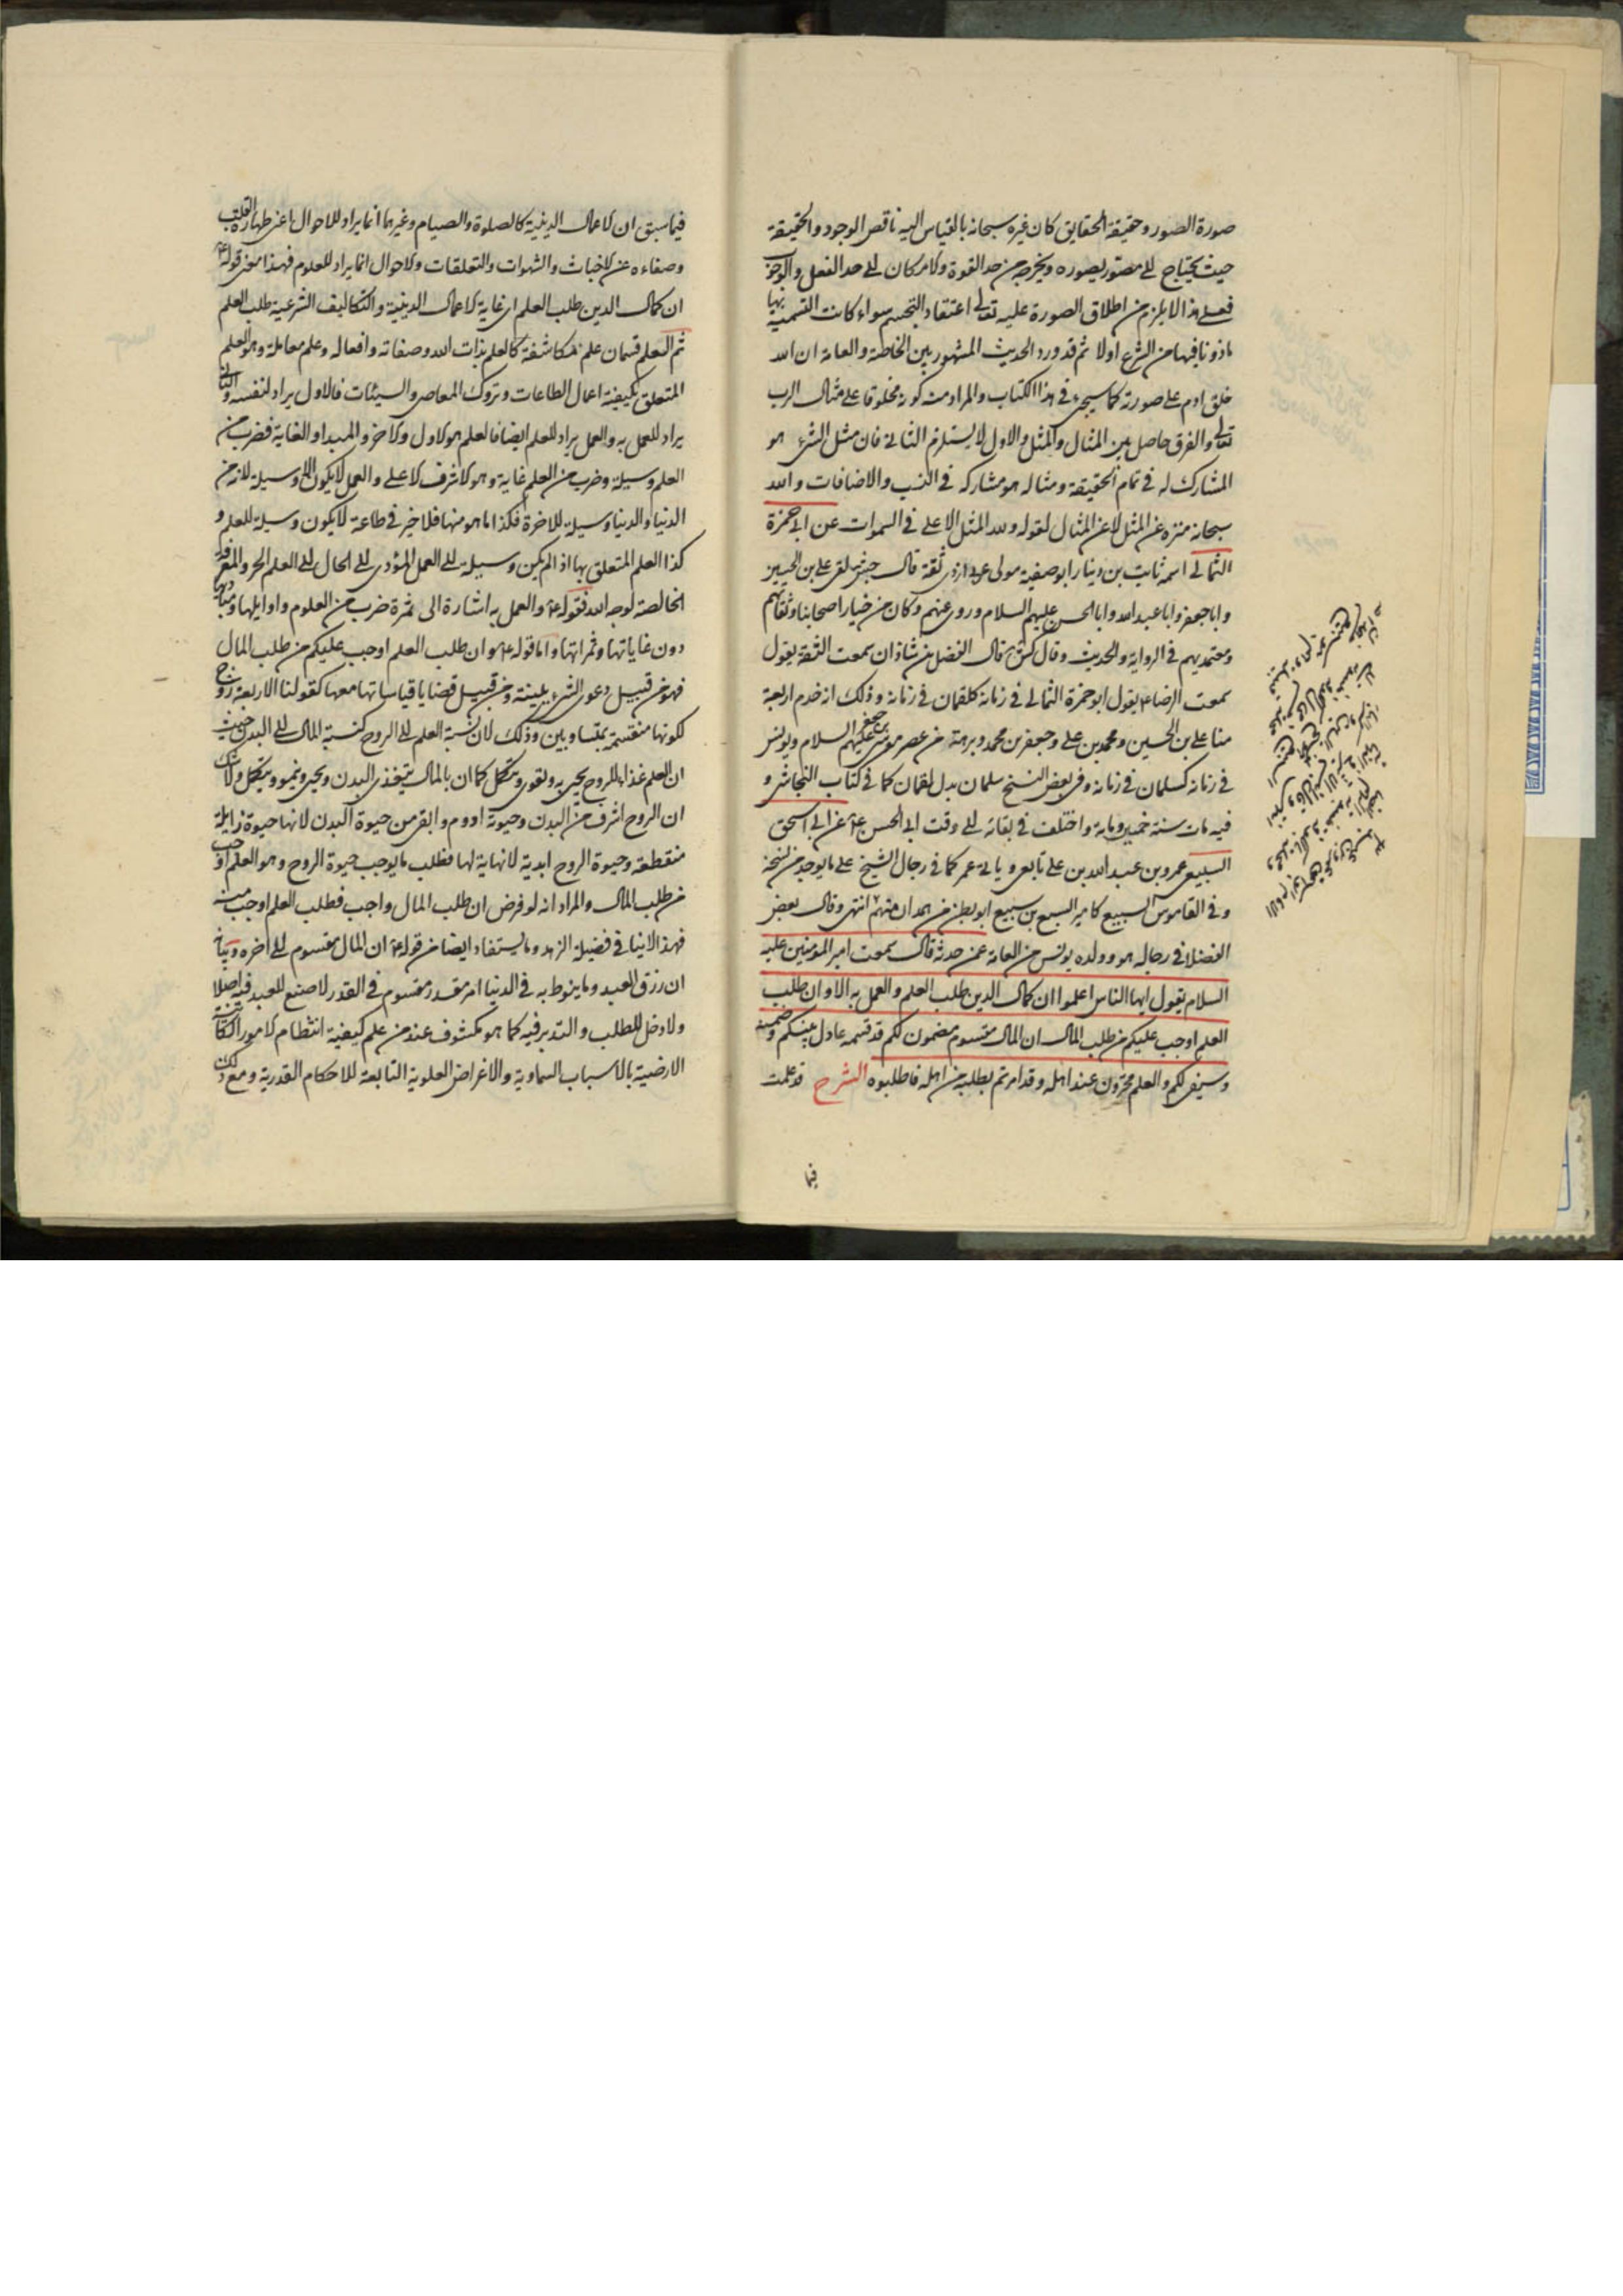 صورة الصور وحقيقة الحقايق كان غيره سبحانه بالقياس اليه ناقص الوجود والحقيقة
حيث يحتاج الى مصور يصوره ويخرجه من حد القوة والامكان الى حد الفعل والوجوب
فعلى هذا لا يلزم من اطلاق الصورة عليه تعالى اعتقاد التجسم سواء كانت التسمية بها
ماذونا فيها من الشرع اولا ثم قد ورد الحديث المشهور بين الخاصة والعامة ان الله
خلق ادم على صورته كما سيجيء في هذا الكتاب والمراد منه كونه مخلوقا على مثال الرب
تعالى والفرق حاصل بين المثال والمثل والاول لا يستلزم الثاني فان مثل الشيء هو
المشارك له في تمام الحقيقة ومثاله هو مشاركه في النسب والاضافات والله
سبحانه منزه عن المثل لا عن المثال لقوله ولله المثل الاعلى في السموات عن ابي حمزة
الثمالي اسمه ثابت بن دينار ابو صفية مولى ازدي ثقة قال جش لقي علي بن الحسين
وابا جعفر وابا عبد الله وابا الحسن عليهم السلام وروى عنهم وكان من خيار اصحابنا وثقاتهم
ومعتمديهم في الرواية والحديث وقال كش قال الفضل بن شاذان سمعت الثقة يقول
سمعت الرضا ع يقول ابو حمزة الثمالي في زمانه كلقمان في زمانه وذلك انه خدم اربعة
منا علي بن الحسين ومحمد بن علي وجعفر بن محمد وبرهة من عصر موسى بن جعفر عليهم السلام ويونس
في زمانه كسلمان في زمانه وفي بعض النسخ سلمان بدل لقمان كما في كتاب النجاشي و
فيه مات سنة خمسين وماية واختلف في بقائه الى وقت ابي الحسن ع عن ابي اسحق
السبيعي عمرو بن عبد الله بن علي تابعي وياتي عمر كما في رجال الشيخ على ما يوجد من نسخة
وفي القاموس السبيع كامير السبيع بن سبيع ابو بطن من همدان منهم انتهى وقال بعض
الفضلا في رجاله هو وولده يونس من العامة عمن حدثه قال سمعت امير المومنين عليه
السلام يقول ايها الناس اعلموا ان كمال الدين طلب العلم والعمل به الا وان طلب
العلم اوجب عليكم من طلب المال ان المال مقسوم مضمون لكم قد قسمه عادل بينكم وضمنه
وسيفي لكم والعلم مخزون عند اهله وقد امرتم بطلبه من اهله فاطلبوه الشرح قد علمت
فيما
فيما سبق ان الاعمال الدينية كالصلوة والصيام وغيرهما انما يراد للاحوال اعني طهارة القلب
وصفاءه عن الاخباث والشهوات والتعلقات والاحوال انما يراد للعلوم فهذا معنى قوله ع
ان كمال الدين طلب العلم اي غاية الاعمال الدينية والتكاليف الشرعية طلب العلم
ثم العلم قسمان علم مكاشفة كالعلم بذات الله وصفاته وافعاله وعلم معاملة وهو العلم
المتعلق بكيفية اعمال الطاعات وتروك المعاصي والسيئات فالاول يراد لنفسه والثاني
يراد للعمل به والعمل يراد للعلم ايضا فالعلم هو الاول والاخر والمبدا والغاية فضرب من
العلم وسيلة وضرب من العلم غاية وهو الاشرف الاعلى والعمل لا يكون الا وسيلة لانه من
الدنيا والدنيا وسيلة للاخرة فكذا ما هو منها فلا خير في طاعة لا يكون وسيلة للعلم و
كذا العلم المتعلق بها اذا لم يكن وسيلة الى العمل المؤدي الى الحال الى العلم الحر والمعرفة
الخالصة لوجه الله فقوله ع والعمل به اشارة الى ثمرة ضرب من العلوم واوايلها ومباديها
دون غاياتها وثمراتها واما قوله ع وان طلب العلم اوجب عليكم من طلب المال
فهو من قبيل دعوى الشيء ببينة ومن قبيل قضايا قياساتها معها كقولنا الاربعة زوج
لكونها منقسمة بمتساويين وذلك لان نسبة العلم الى الروح كنسبة المال الى البدن من حيث
ان العلم غذاء للروح يحيى به ويقوى ويتكمل كما ان بالمال يتغذى البدن ويحيى وينمو ويتكمل ولا شك
ان الروح اشرف من البدن وحيوته ادوم وابقى من حيوة البدن لانها حيوة زايلة
منقطعة وحيوة الروح ابدية لا نهاية لها فطلب ما يوجب حيوة الروح وهو العلم اوجب
من طلب المال والمراد انه لو فرض ان طلب المال واجب فطلب العلم اوجب منه
فهذا لا ينافي فضيلة الزهد وما يستفاد ايضا من قوله ع ان المال مقسوم الى اخره وبيانه
ان رزق العبد وما ينوط به في الدنيا امر مقدر مقسوم في القدر لا صنع للعبد فيه اصلا
ولا دخل للطلب والتدبير فيه كما هو مكشوف عند من علم كيفية انتظام الامور الكائنة
الارضية بالاسباب السماوية والاغراض العلوية التابعة للاحكام القدرية ومع ذلك